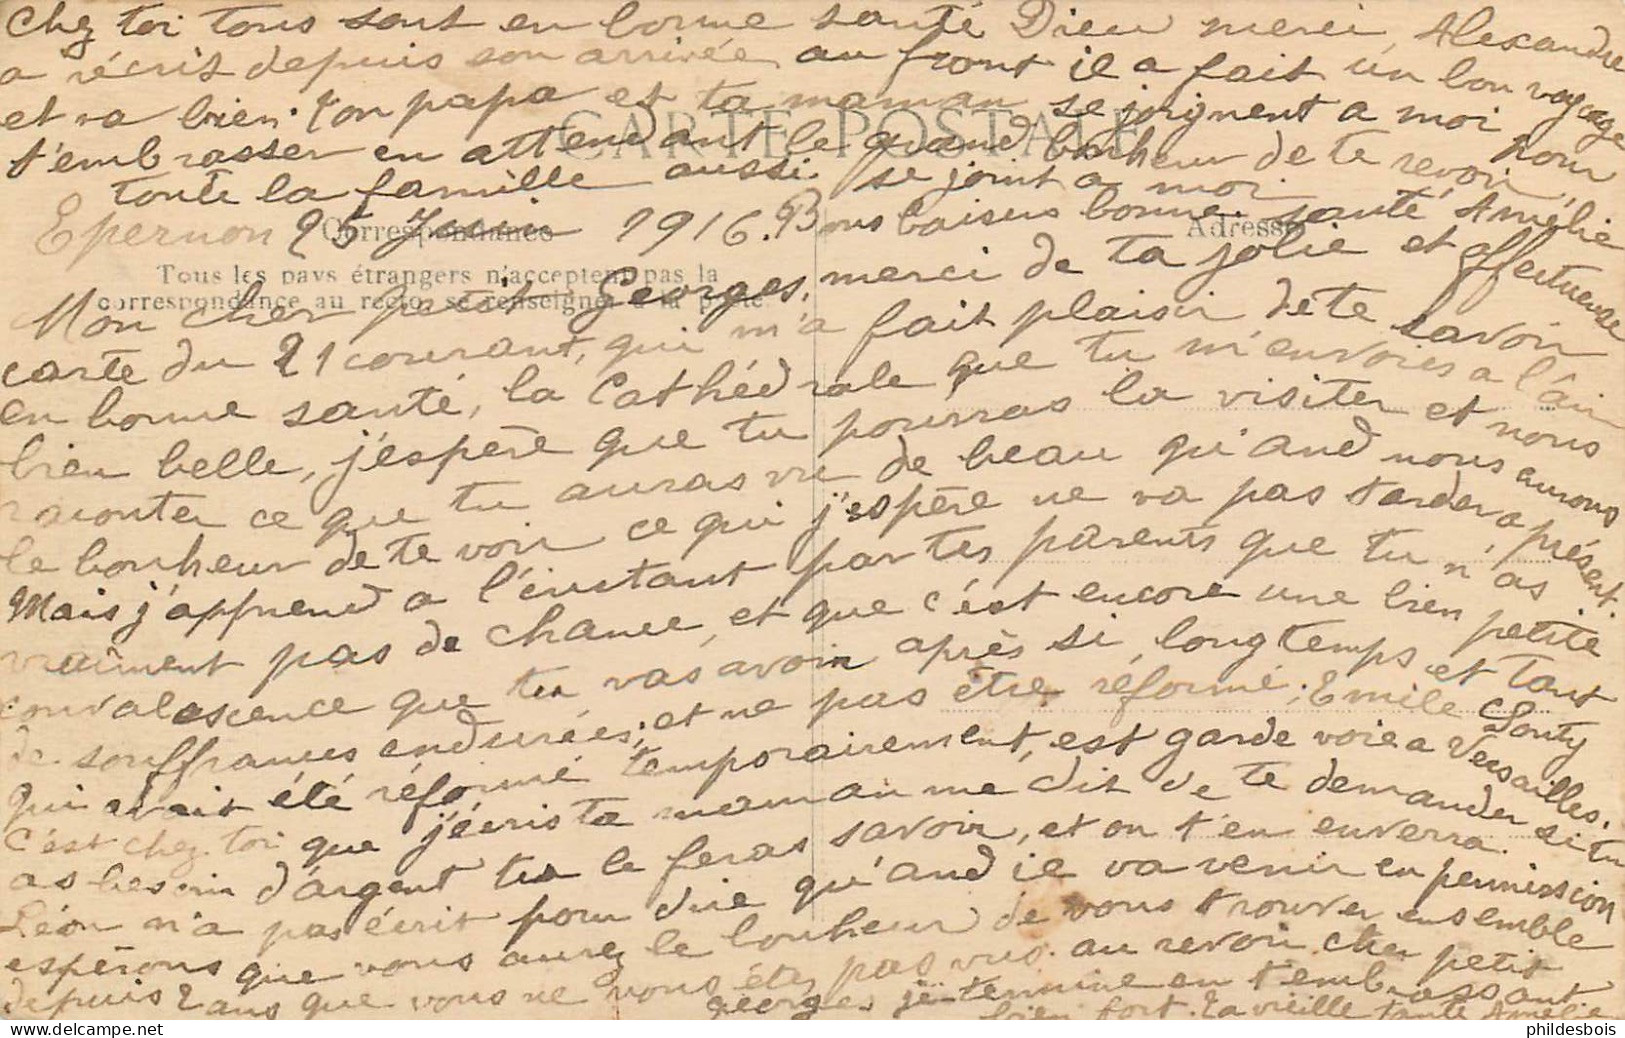 Chez toi tous sont en bonne santé Dieu merci, Alexandre
a récrit depuis son arrivée au front il a fait un bon voyage
et va bien. ton papa et ta maman se joignent a moi pour
t'embrasser en attendant le grand bonheur de te revoir,
toute la famille aussi se joint a moi.
CARTE POSTALE
Epernon 25 Juin 1916. Bons baisers bonne santé Amélie
Correspondance
Adresse
Tous les pays étrangers n'acceptent pas la
correspondance au recto se renseigner à la poste
Mon cher petit Georges, merci de ta jolie et affectueuse
carte du 21 courant, qui m'a fait plaisir de te savoir
en bonne santé, la Cathédrale que tu m'envoies a l'air
bien belle, j'espère que tu pourras la visiter et nous
raconter ce que tu auras vu de beau qu'and nous aurons
le bonheur de te voir ce qui j'espère ne va pas tarder a présent.
Mais j'apprend a l'instant par tes parents que tu n'as
vraiment pas de chance, et que c'est encore une bien petite
convalescence que tu vas avoir après si longtemps et tant
de souffrances endurées, et ne pas être réformé; Emile
qui avait été réformé temporairement, est garde voie a Versailles.
C'est chez toi que j'écris ta maman me dit de te demander si tu
as besoin d'argent tu le feras savoir, et on t'en enverra.
Léon n'a pas écrit pour dire qu'and il va venir en permission
espérons que vous aurez le bonheur de vous trouver ensemble
depuis 2 ans que vous ne vous étes pas vus. au revoir cher petit
Georges je termine en t'embrassant
bien fort. Ta vieille tante Amélie
phildesbois